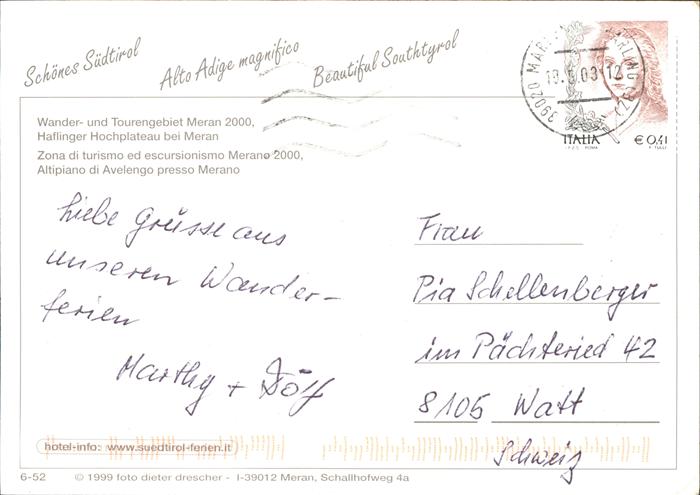 Schönes Südtirol
Alto Adige magnifico
Beautiful Southtyrol
39020 MARLING
19.5.03-12
(BZ)
ITALIA
I.P.Z.S. ROMA
€ 0,41
F. TULLI
Wander- und Tourengebiet Meran 2000,
Haflinger Hochplateau bei Meran
Zona di turismo ed escursionismo Merano 2000,
Altipiano di Avelengo presso Merano
Liebe Grüsse aus
unseren Wander-
ferien
Marthy + Dölf
Frau
Pia Schellenberger
im Pächterried 42
8105 Watt
Schweiz
hotel-info: www.suedtirol-ferien.it
6-52 © 1999 foto dieter drescher - I-39012 Meran, Schallhofweg 4a